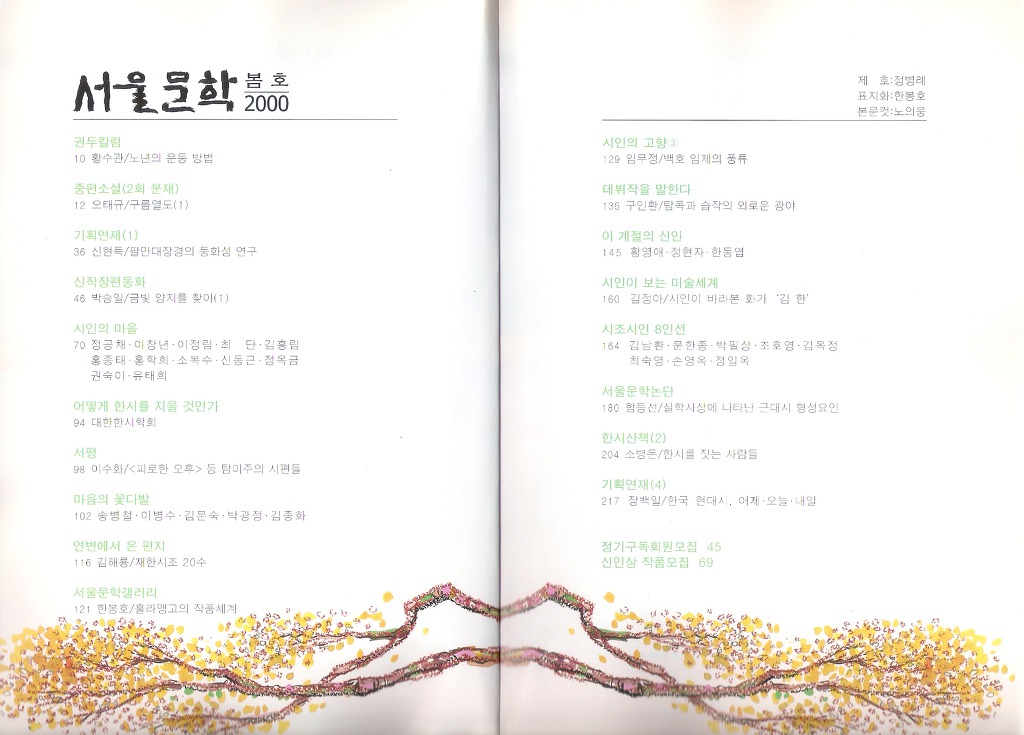 서울문학 봄 호
2000
권두칼럼
10 황수관/노년의 운동 방법
중편소설(2회 분재)
12 오태규/구름열도(1)
기획연재(1)
36 신현득/팔만대장경의 동화성 연구
신작장편동화
46 박승일/금빛 양지를 찾아(1)
시인의 마을
70 정공채·이창년·이정림·최 단·김홍림
홍종태·홍학희·소목수·신동근·정옥금
권숙이·유태희
어떻게 한시를 지을 것인가
94 대한한시학회
서평
98 이수화/<피로한 오후> 등 탐미주의 시편들
마음의 꽃다발
102 송병철·이병수·김문숙·박광정·김종화
연변에서 온 편지
116 김해룡/재한시조 20수
서울문학갤러리
121 한봉호/홀라맹고의 작품세계
제 호:정병례
표지화:한봉호
본문컷:노의웅
시인의 고향③
129 임무정/백호 임제의 풍류
데뷔작을 말한다
136 구인환/탐독과 습작의 외로운 광야
이 계절의 신인
145 황영애·정현자·한동엽
시인이 보는 미술세계
160 김정아/시인이 바라본 화가 '김 한'
시조시인 8인선
164 김남환·문한종·박필상·조호영·김옥정
최숙영·손영옥·정일옥
서울문학논단
180 함동선/실학사상에 나타난 근대시 형성요인
한시산책(2)
204 소병돈/한시를 짓는 사람들
기획연재(4)
217 장백일/한국 현대시, 어제·오늘·내일
정기구독회원모집 45
신인상 작품모집 69